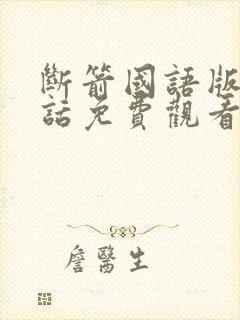 斷箭國語版
話免費觀看
詹醫生